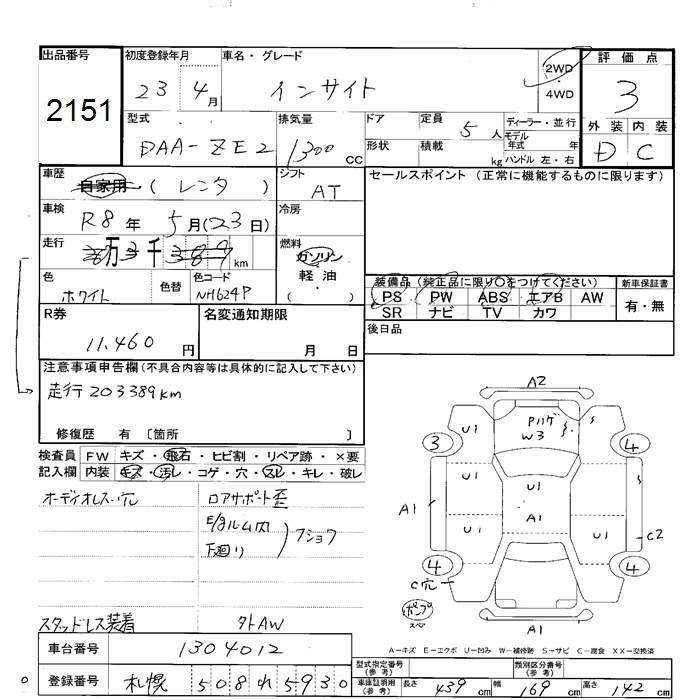 出品番号
2151
初度登録年月
23 4月
車名・グレード
インサイト
2WD
・
4WD
評価点
3
外装 内装
D C
型式
DAA-ZE2
排気量
1300 CC
ドア
形状
定員 5人
積載 kg
ディーラー・並行
モデル
年式 年
ハンドル 左・右
車歴
自家用 (レンタ)
シフト
AT
セールスポイント (正常に機能するものに限ります)
車検
R8年 5月(23日)
冷房
走行
万 3千 389 km
燃料
ガソリン
軽・油
( )
色
ホワイト
色替
色コード
NH624P
装備品 (純正品に限り〇をつけてください)
PS PW ABS エアB AW
SR ナビ TV カワ
新車保証書
有・無
R券
11,460 円
名変通知期限
月 日
後日品
注意事項申告欄(不具合内容等は具体的に記入して下さい)
走行203389km
修復歴 有 〔箇所 〕
検査員
記入欄
FW キズ・飛石・ヒビ割・リペア跡・×要
内装 キズ・汚レ・コゲ・穴・スレ・キレ・破レ
オーディオレス・穴
ロアサポート歪
E/gルーム内
下廻り
フショク
スタッドレス装着
タトAW
A2
Pハゲ
W3
U1
3
4
U1
U1
A1
U1
A1
U1
C2
4
4
C穴
パンプ
スペ
A1
A-キズ E-エクボ U-凹み W-補修跡 S-サビ C-腐食 XX-交換済
車台番号
1304012
登録番号
札幌 508れ5930
型式指定番号
(参考)
類別区分番号
(参考)
車庫証明用
(参考)
長さ 439 cm 幅 169 cm 高さ 142 cm